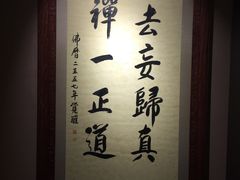 去妄歸真
禪一正道
佛曆二五五七年覺醒